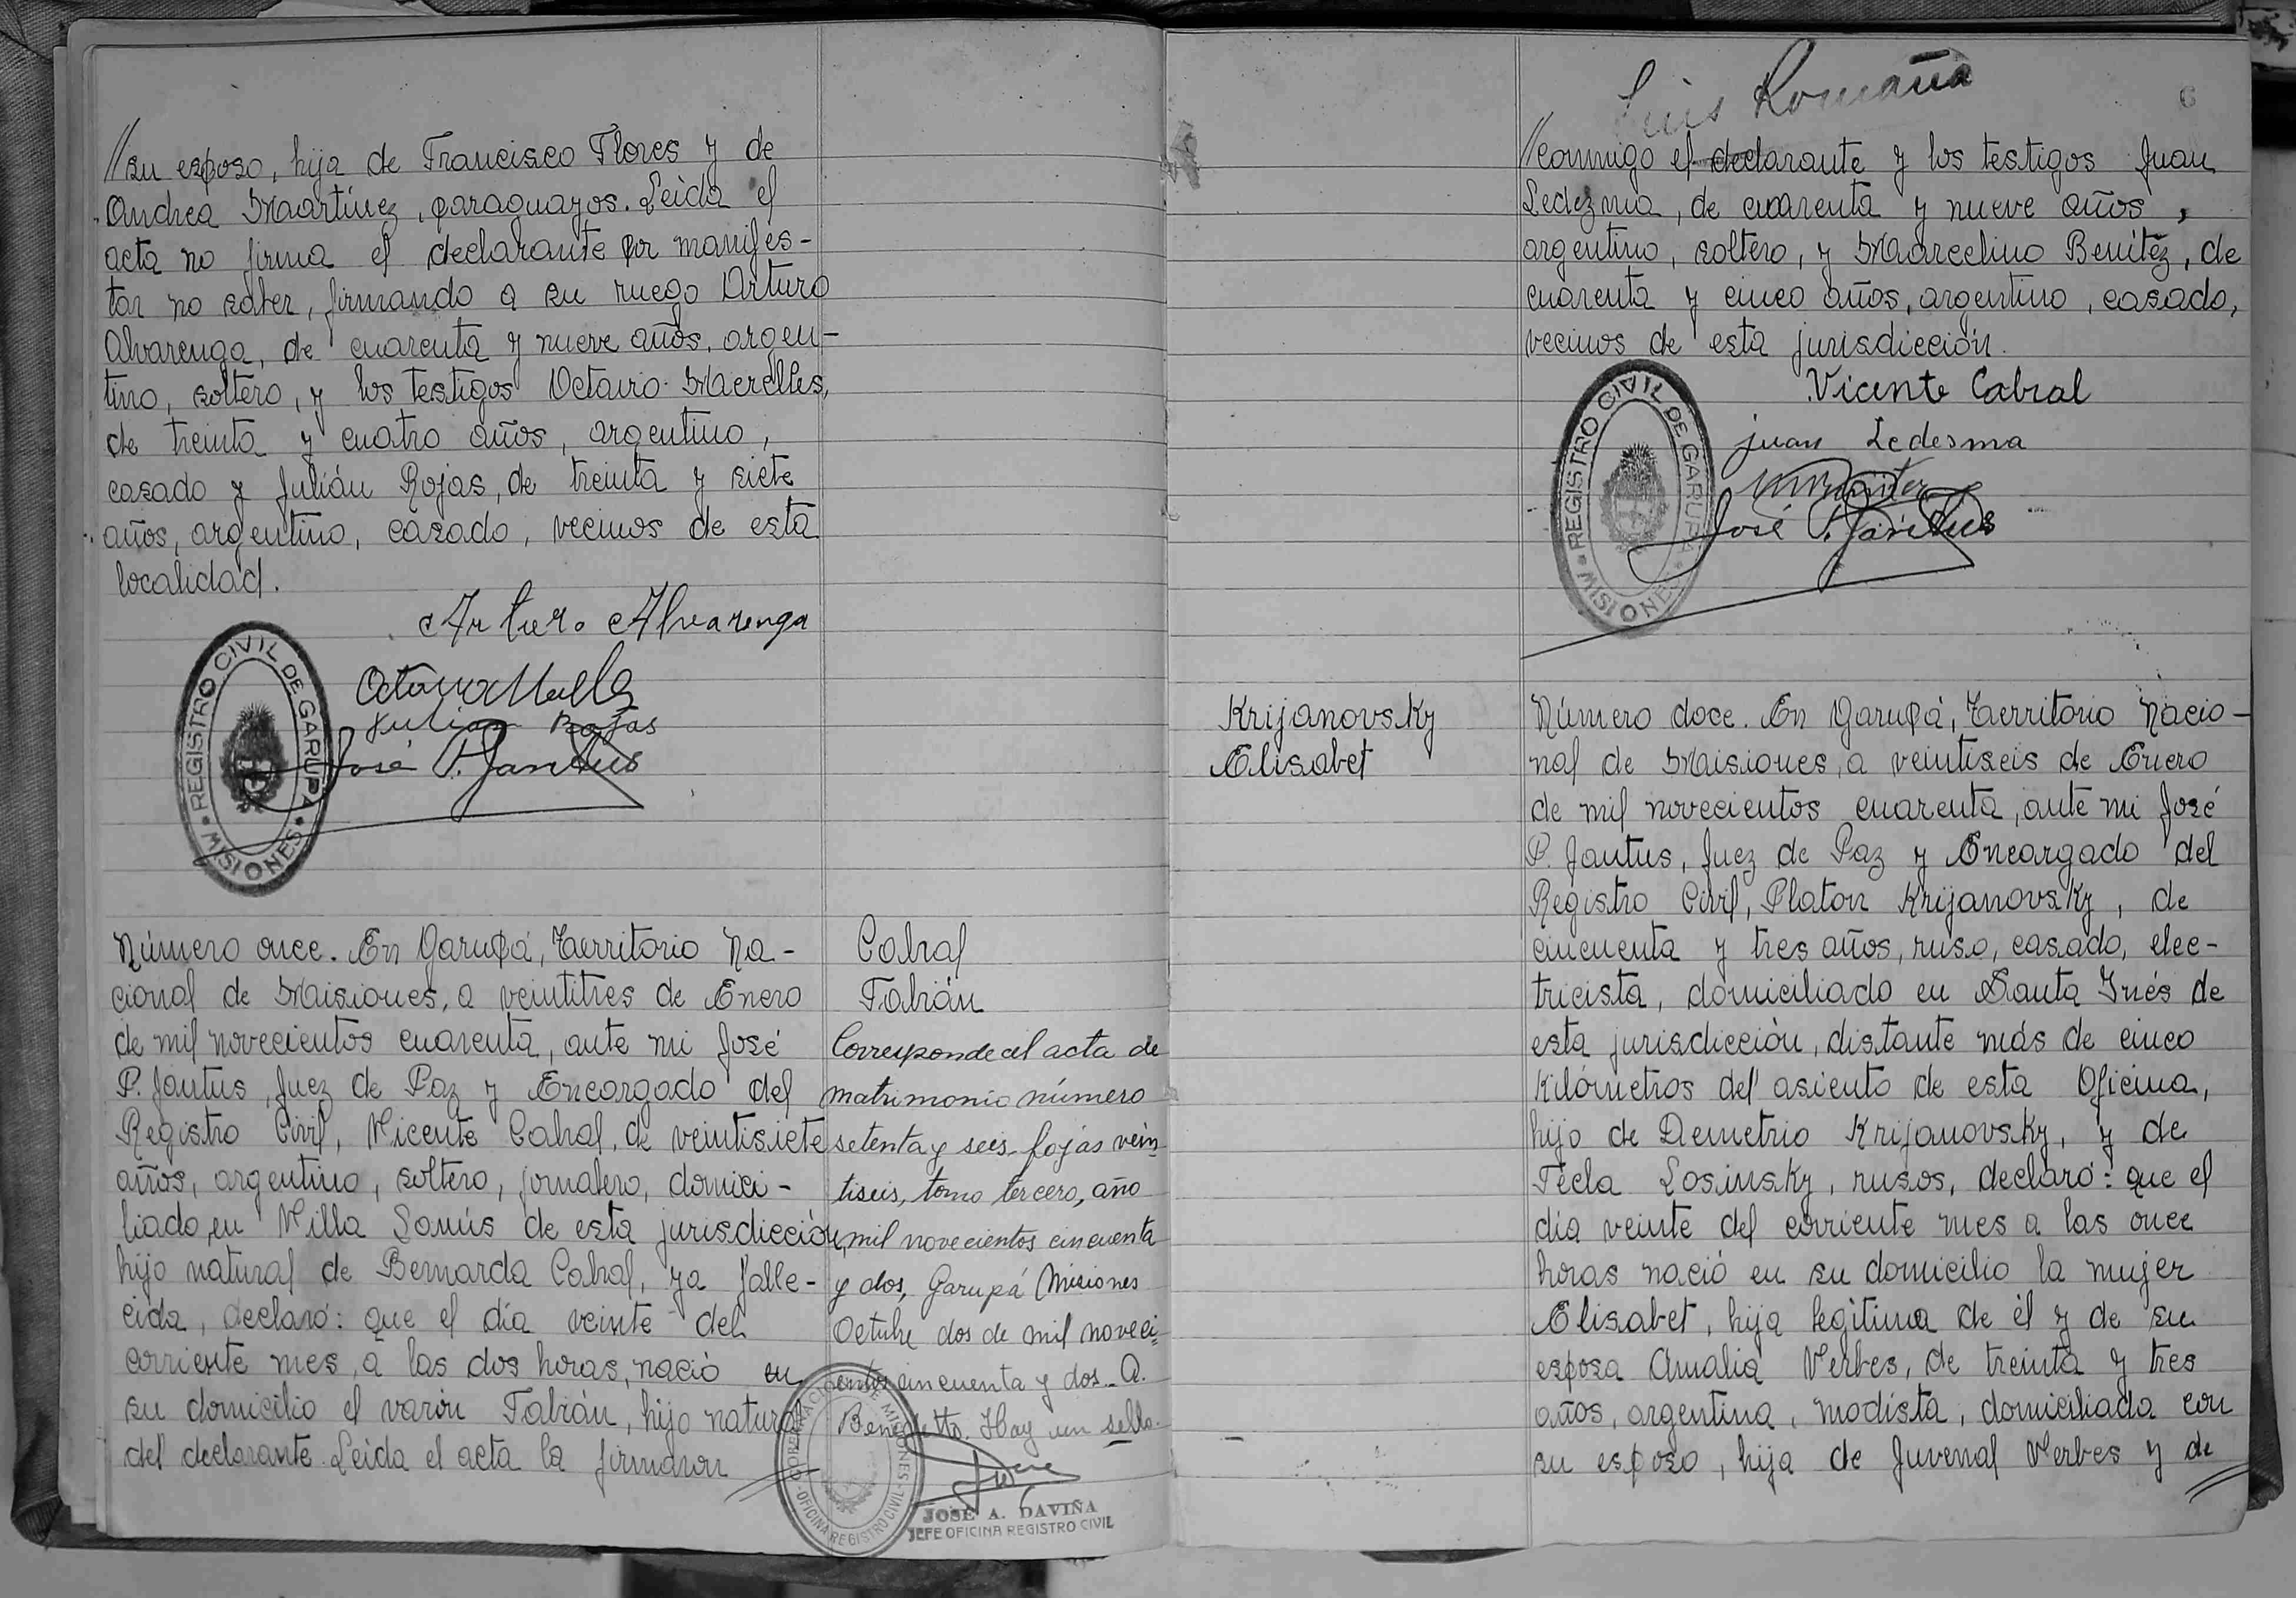 //su esposo, hija de Francisco Flores y de
Andrea Maartínez, paraguayos. Leida el
acta no firma el declarante por manifes-
tar no saber, firmando a su ruego Arturo
Alvarenga, de cuarenta y nueve años, argen-
tino, soltero, y los testigos Octavio
de treinta y cuatro años, argentino,
casado y Julián Rojas, de treinta y siete
años, argentino, casado, vecinos de esta
localidad.
Arturo Alvarenga
Julian Rojas
José P. Jantus
REGISTRO CIVIL DE GARUPA
MISIONES
Número once. En Garupá, Territorio Na-
cional de Misiones, a veintitres de Enero
de mil novecientos cuarenta, ante mi José
P. Jantus, Juez de Paz y Encargado del
Registro Civil, Vicente Cabral, de veintisiete
años, argentino, soltero, jornalero, domici-
liado en Villa Lanús de esta jurisdicción,
hijo natural de Bernarda Cabral, ya falle-
cida, declaró: que el día veinte del
corriente mes, a las dos horas, nació en
su domicilio el varón Fabián, hijo natural
del declarante. Leida el acta la firmaron
Cabral
Fabián
Corresponde al acta de
matrimonio número
setenta y seis, fojas vein
tiseis, tomo tercero, año
mil novecientos cincuenta
y dos, Garupá Misiones
Octubre dos de mil noveci=
entos cincuenta y dos. A.
Benedetto. Hay un sello.
GOBERNACION DE MISIONES
OFICINA REGISTRO CIVIL
JOSE A. DAVIÑA
JEFE OFICINA REGISTRO CIVIL
Luis Romaña
6
//conmigo el declarante y los testigos Juan
Ledezma, de cuarenta y nueve años,
argentino, soltero, y Marcelino Benítez, de
cuarenta y cinco años, argentino, casado,
vecinos de esta jurisdicción.
Vicente Cabral
juan Ledesma
José P. Jantus
REGISTRO CIVIL DE GARUPA
MISIONES
Krijanovsky
Elisabet
Número doce. En Garupá, Territorio Nacio-
nal de Misiones, a veintiseis de Enero
de mil novecientos cuarenta, ante mi José
P. Jantus, Juez de Paz y Encargado del
Registro Civil, Platon Krijanovsky, de
cincuenta y tres años, ruso, casado, elec-
tricista, domiciliado en Santa Inés de
esta jurisdicción, distante más de cinco
kilómetros del asiento de esta Oficina,
hijo de Demetrio Krijanovsky, y de
Tecla Losinsky, rusos, declaró: que el
día veinte del corriente mes a las once
horas nació en su domicilio la mujer
Elisabet, hija legítima de él y de su
esposa Amalia Verbes, de treinta y tres
años, argentina, modista, domiciliada con
su esposo, hija de Juvenal Verbes y de //